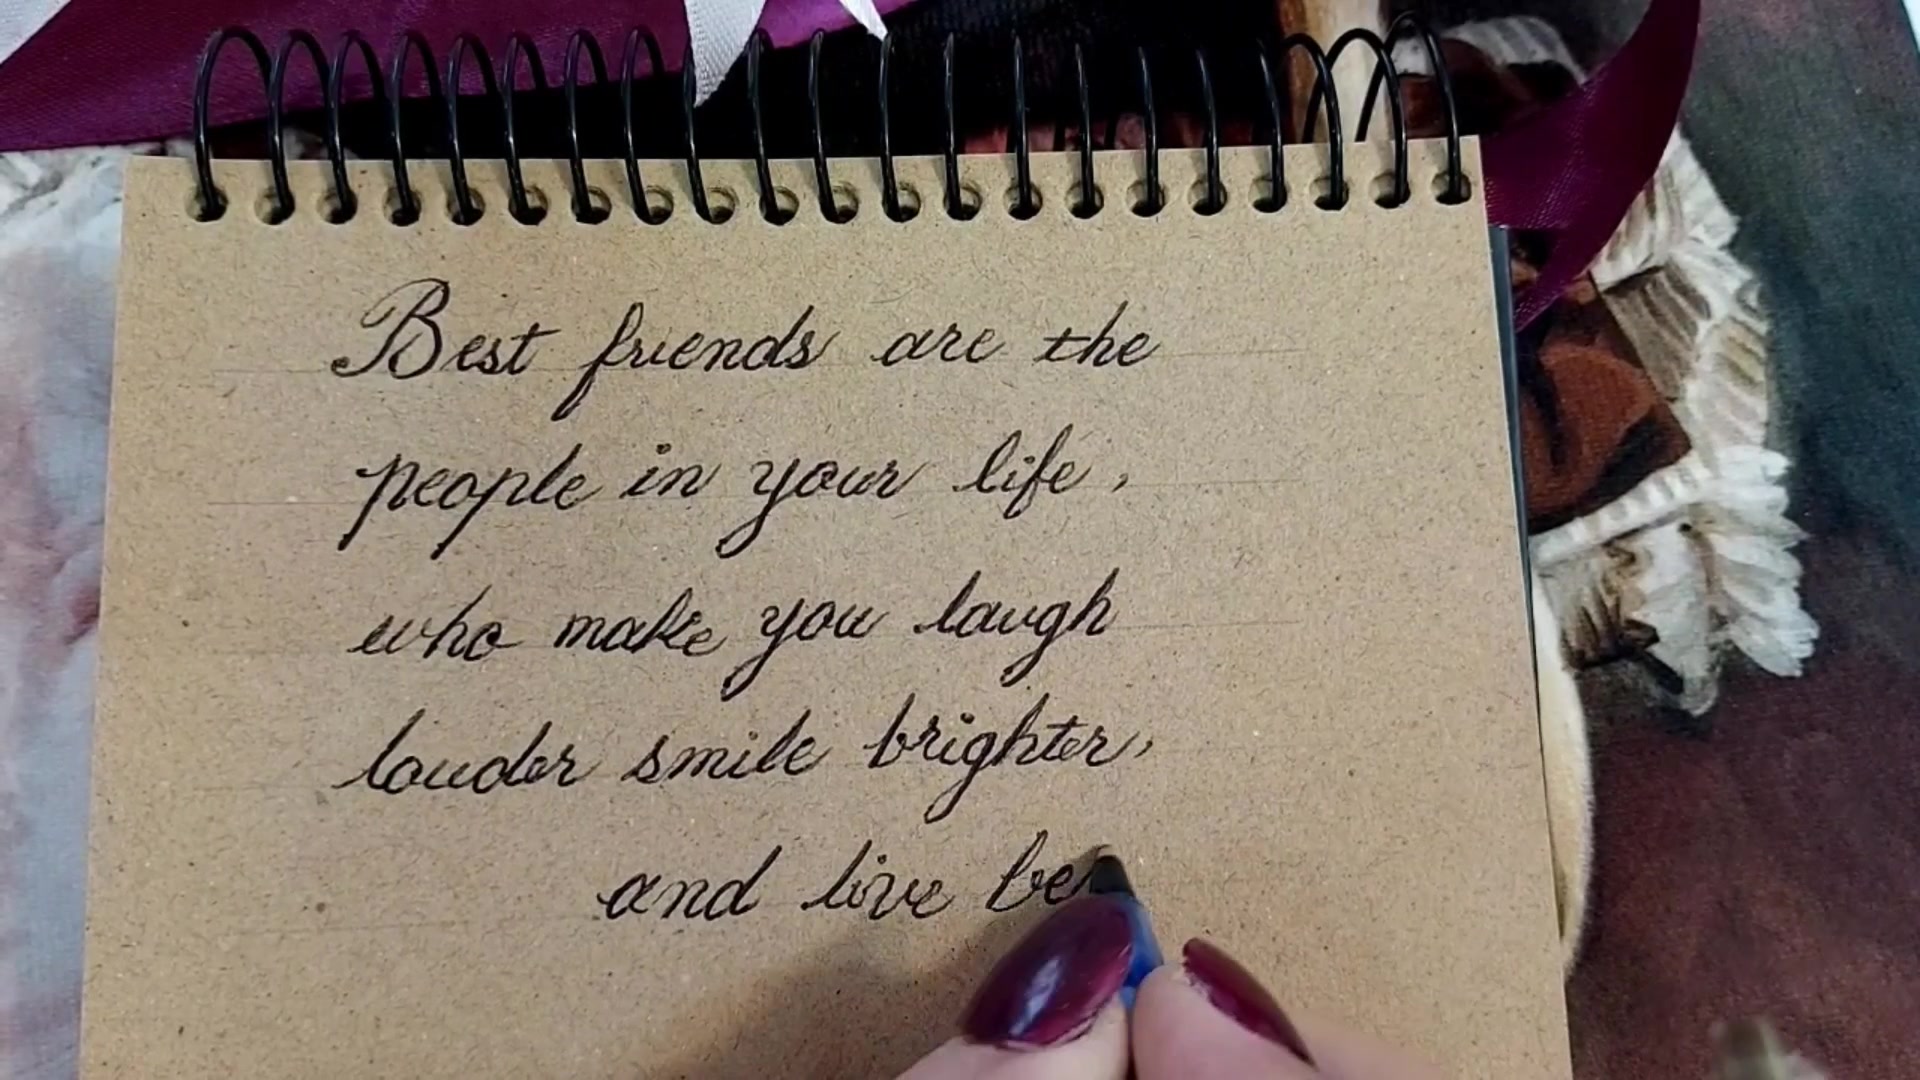 Best friends are the
people in your life,
who make you laugh
louder smile brighter,
and live be